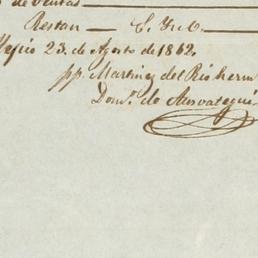 de Ventas
Restan — S. Y. u O.
Mejico 23. de Agosto de 1862.
pp. Martinez del Rio herm
Dom.º de Ansoategui